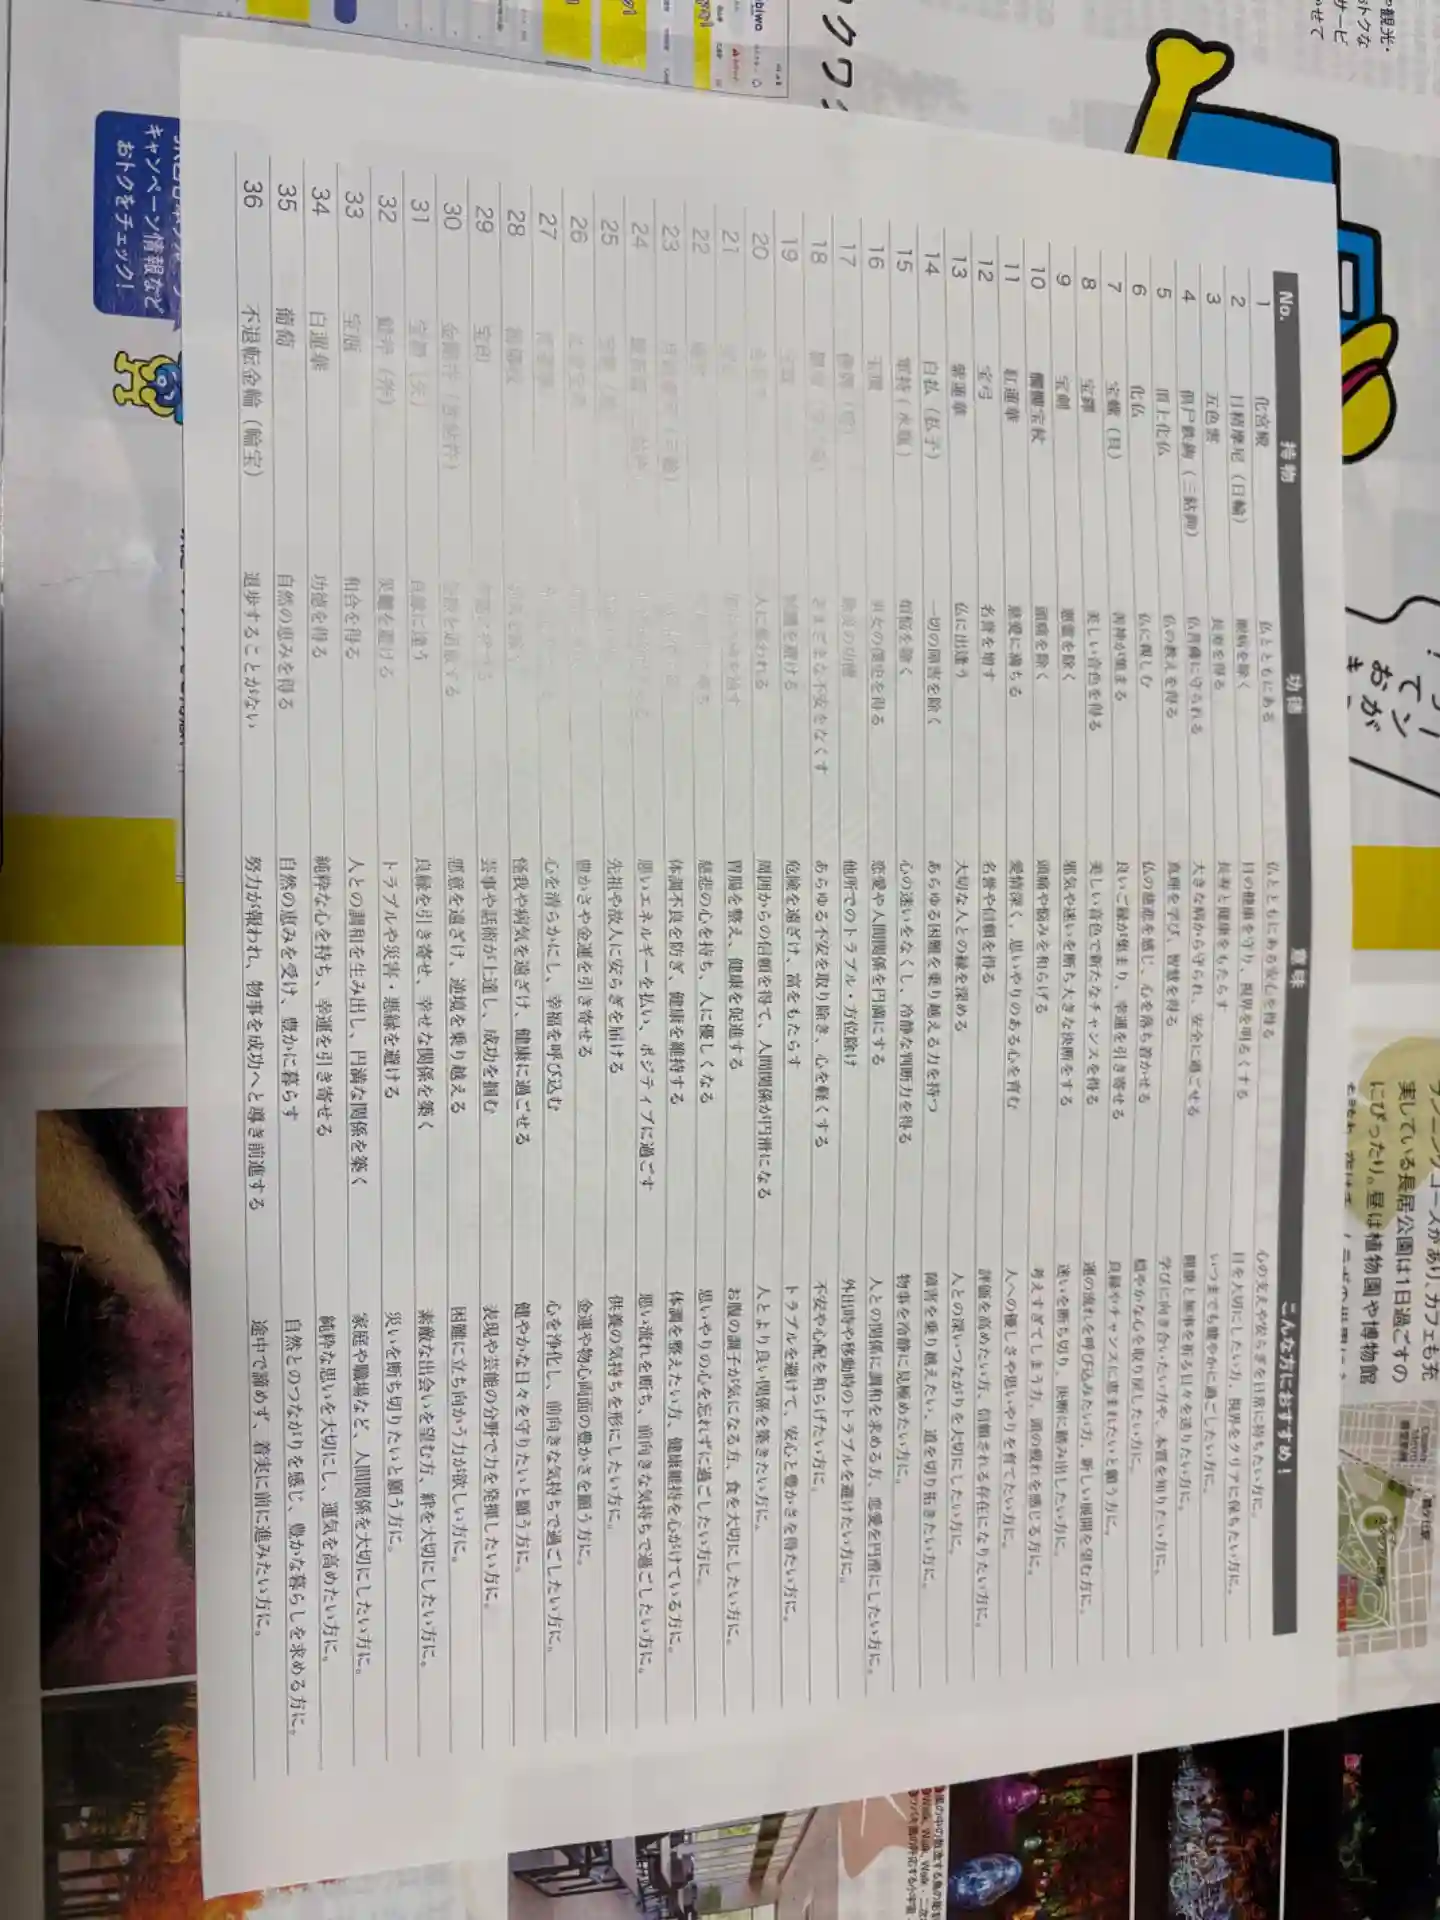 No. 持物 功徳 意味 こんな方におすすめ！
1 化宮殿 仏とともにある 仏とともにある安心を得る 心の支えや安らぎを日常に持ちたい方に。
2 日精摩尼（日輪） 眼病を除く 目の健康を守り、視界を明るくする 目を大切にしたい方、視界をクリアに保ちたい方に。
3 五色雲 長寿を得る 長寿と健康をもたらす いつまでも健やかに過ごしたい方に。
4 倶尸鉄鉤（三鈷鉤） 仏菩薩に守られる 大きな病から守られ、安全に過ごせる 健康と無事を祈る日々を送りたい方に。
5 頂上化仏 仏の教えを得る 真理を学び、智慧を得る 学びに向き合いたい方や、本質を知りたい方に。
6 化仏 仏に親しむ 仏の慈悲を感じ、心を落ち着かせる 穏やかな心を取り戻したい方に。
7 宝螺（貝） 善神が集まる 良いご縁が集まり、幸運を引き寄せる 良縁やチャンスに恵まれたいと願う方に。
8 宝鐸 美しい音色を得る 美しい音色で新たなチャンスを得る 運の流れを呼び込みたい方、新しい展開を望む方に。
9 宝剣 悪霊を除く 邪気や迷いを断ち大きな決断をする 迷いを断ち切り、決断に踏み出したい方に。
10 髑髏宝杖 頭痛を除く 頭痛や悩みを和らげる 考えすぎてしまう方、頭の疲れを感じる方に。
11 紅蓮華 慈愛に満ちる 愛情深く、思いやりのある心を育む 人への優しさや思いやりを育てたい方に。
12 宝弓 名誉を増す 名誉や信頼を得る 評価を高めたい方、信頼される存在になりたい方に。
13 紫蓮華 仏に出逢う 大切な人との縁を深める 人との深いつながりを大切にしたい方に。
14 白払（払子） 一切の障害を除く あらゆる困難を乗り越える力を持つ 障害を乗り越えたい、道を切り拓きたい方に。
15 軍持（水瓶） 煩悩を除く 心の迷いをなくし、冷静な判断力を得る 物事を冷静に見極めたい方に。
16 玉環 男女の僕使を得る 恋愛や人間関係を円満にする 人との関係に調和を求める方、恋愛を円滑にしたい方に。
17 他所でのトラブル・方位除け 外出時や移動時のトラブルを避けたい方に。
18 さまざまな不安をなくす あらゆる不安を取り除き、心を軽くする 不安や心配を和らげたい方に。
19 危険を遠ざけ、富をもたらす トラブルを避けて、安心と豊かさを得たい方に。
20 人に慕われる 周囲からの信頼を得て、人間関係が円滑になる 人とより良い関係を築きたい方に。
21 胃腸を整え、健康を促進する お腹の調子が気になる方、食を大切にしたい方に。
22 慈悲の心を持ち、人に優しくなる 思いやりの心を忘れずに過ごしたい方に。
23 体調不良を防ぎ、健康を維持する 体調を整えたい方、健康維持を心がけている方に。
24 悪いエネルギーを払い、ポジティブに過ごす 悪い流れを断ち、前向きな気持ちで過ごしたい方に。
25 先祖や故人に安らぎを届ける 供養の気持ちを形にしたい方に。
26 豊かさや金運を引き寄せる 金運や物心両面の豊かさを願う方に。
27 心を清らかにし、幸福を呼び込む 心を浄化し、前向きな気持ちで過ごしたい方に。
28 怪我や病気を遠ざけ、健康に過ごせる 健やかな日々を守りたいと願う方に。
29 宝印 芸事や話術が上達し、成功を掴む 表現や芸能の分野で力を発揮したい方に。
30 悪意を遠ざけ、逆境を乗り越える 困難に立ち向かう力が欲しい方に。
31 宝箭（矢） 良縁に逢う 良縁を引き寄せ、幸せな関係を築く 素敵な出会いを望む方、絆を大切にしたい方に。
32 災難を避ける トラブルや災害・悪縁を避ける 災いを断ち切りたいと願う方に。
33 宝瓶 和合を得る 人との調和を生み出し、円満な関係を築く 家庭や職場など、人間関係を大切にしたい方に。
34 白蓮華 功徳を得る 純粋な心を持ち、幸運を引き寄せる 純粋な思いを大切にし、運気を高めたい方に。
35 葡萄 自然の恵みを得る 自然の恵みを受け、豊かに暮らす 自然とのつながりを感じ、豊かな暮らしを求める方に。
36 不退転金輪（輪宝） 退歩することがない 努力が報われ、物事を成功へと導き前進する 途中で諦めず、着実に前に進みたい方に。
キャンペーン情報など
おトクをチェック！
実している長居公園は1日過ごすの
にぴったり。昼は植物園や博物館